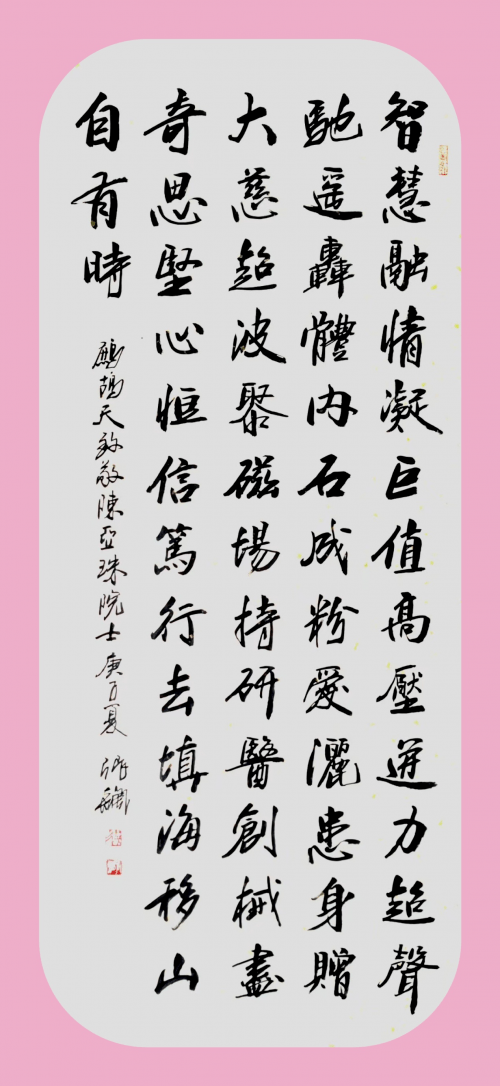 智慧融情凝巨值高壓迸力超聲
馳遥轟體内石成粉愛灑患身贈
大慈超波聚磁場持研醫創械盡
奇思堅心恒信篤行去填海移山
自有時
鷓鴣天致敬陳亞珠院士庚子夏